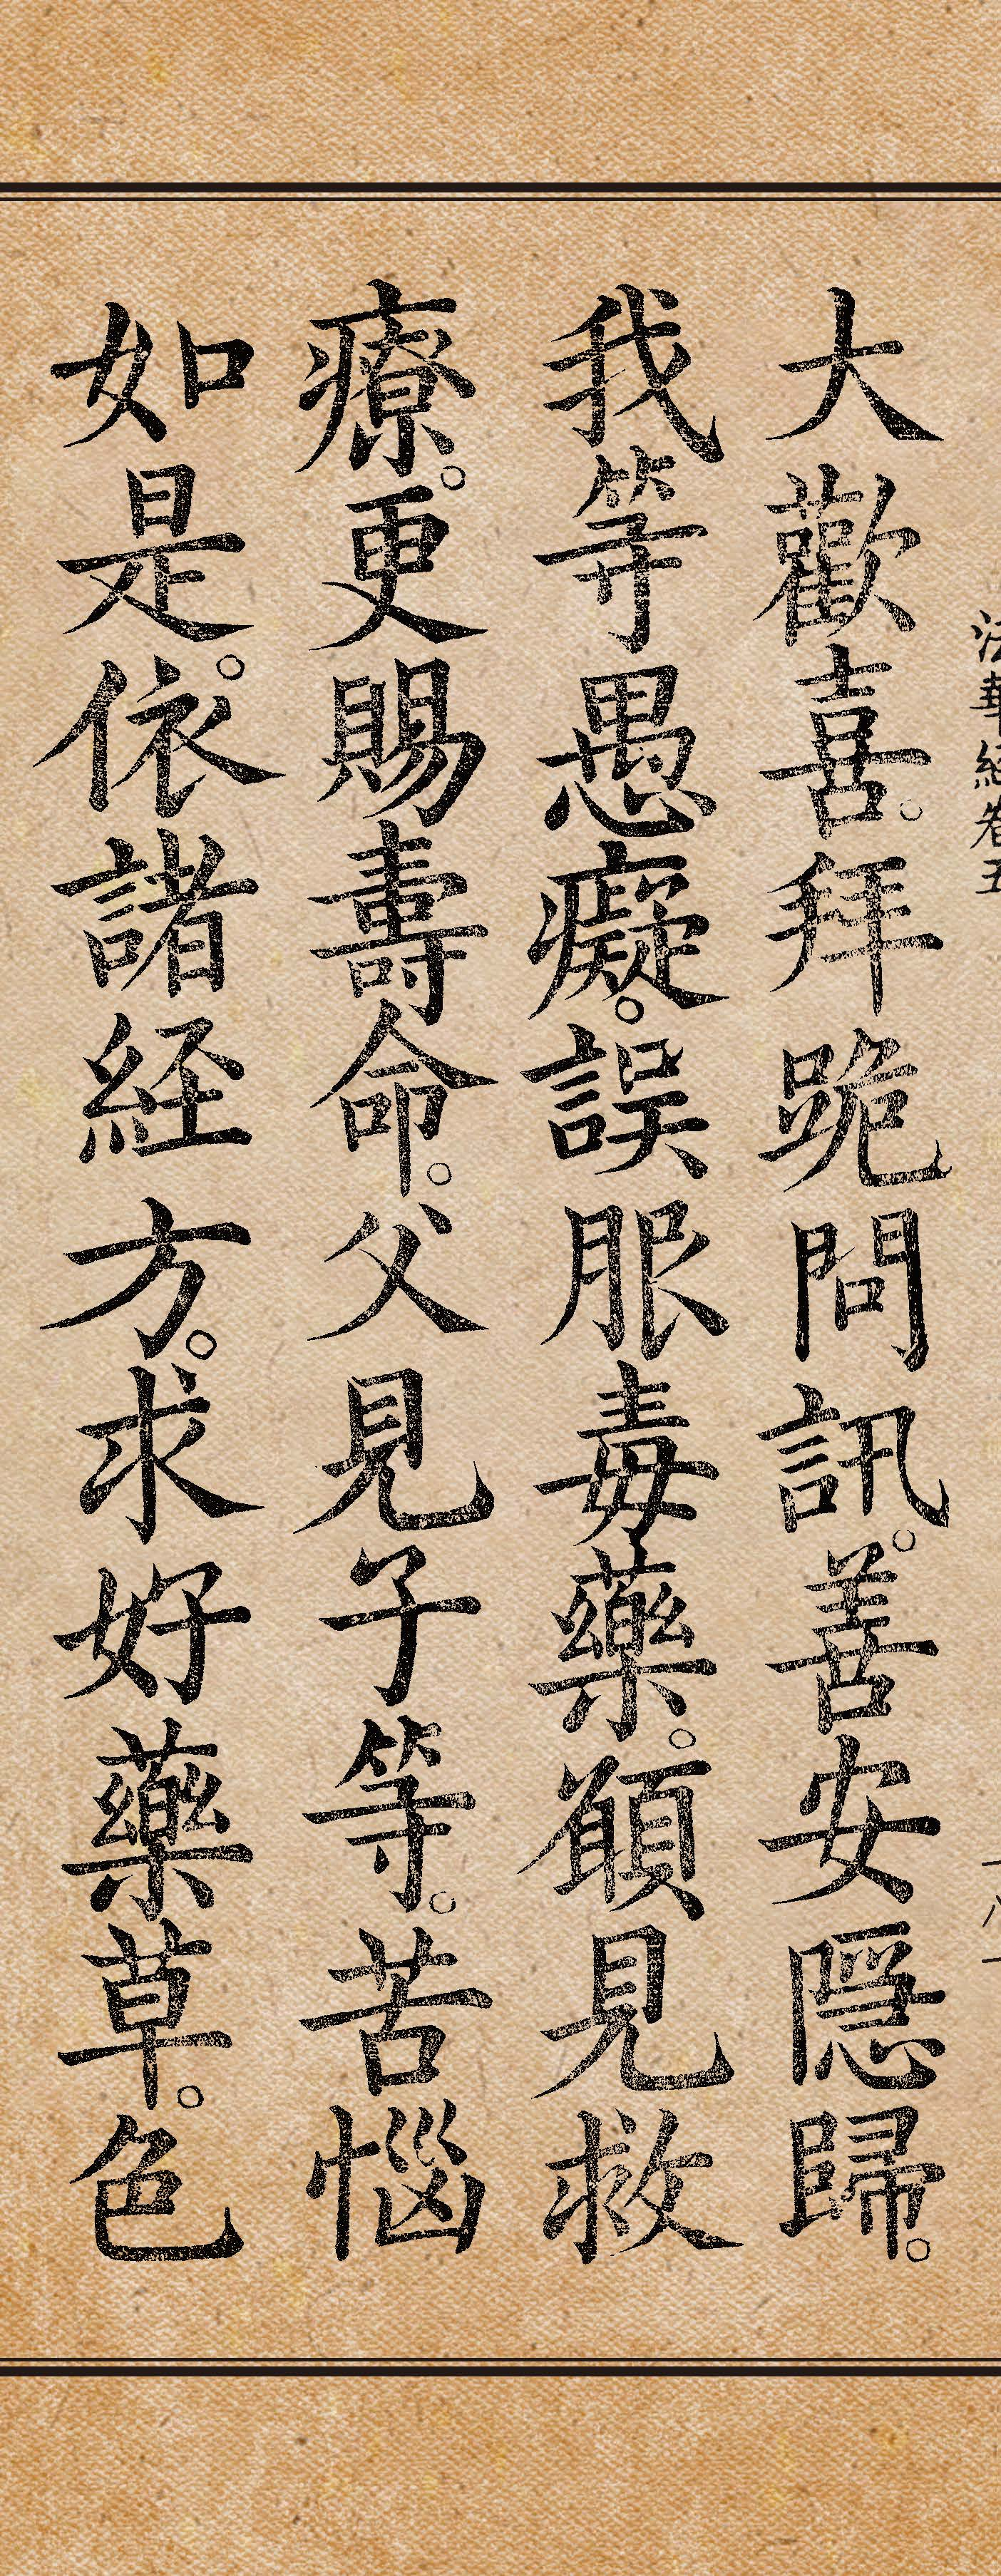 法華経卷五
大歡喜。拜跪問訊。善安隱歸。
我等愚癡。誤服毒藥。願見救
療。更賜壽命。父見子等。苦惱
如是。依諸経方。求好藥草。色